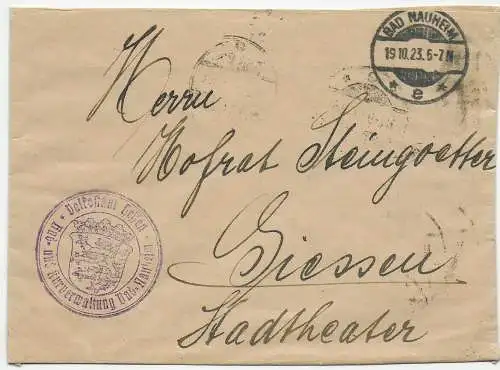 BAD NAUHEIM
19.10.23.6-7N
* e *
Herrn
Hofrat Steingoetter
Giessen
Stadtheater
Volksstaat Hessen
Bad- und Kurverwaltung Bad-Nauheim